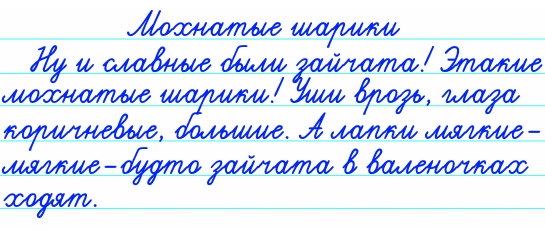 Мохнатые шарики
Ну и славные были зайчата! Этакие
мохнатые шарики! Уши врозь, глаза
коричневые, большие. А лапки мягкие-
мягкие-будто зайчата в валеночках
ходят.